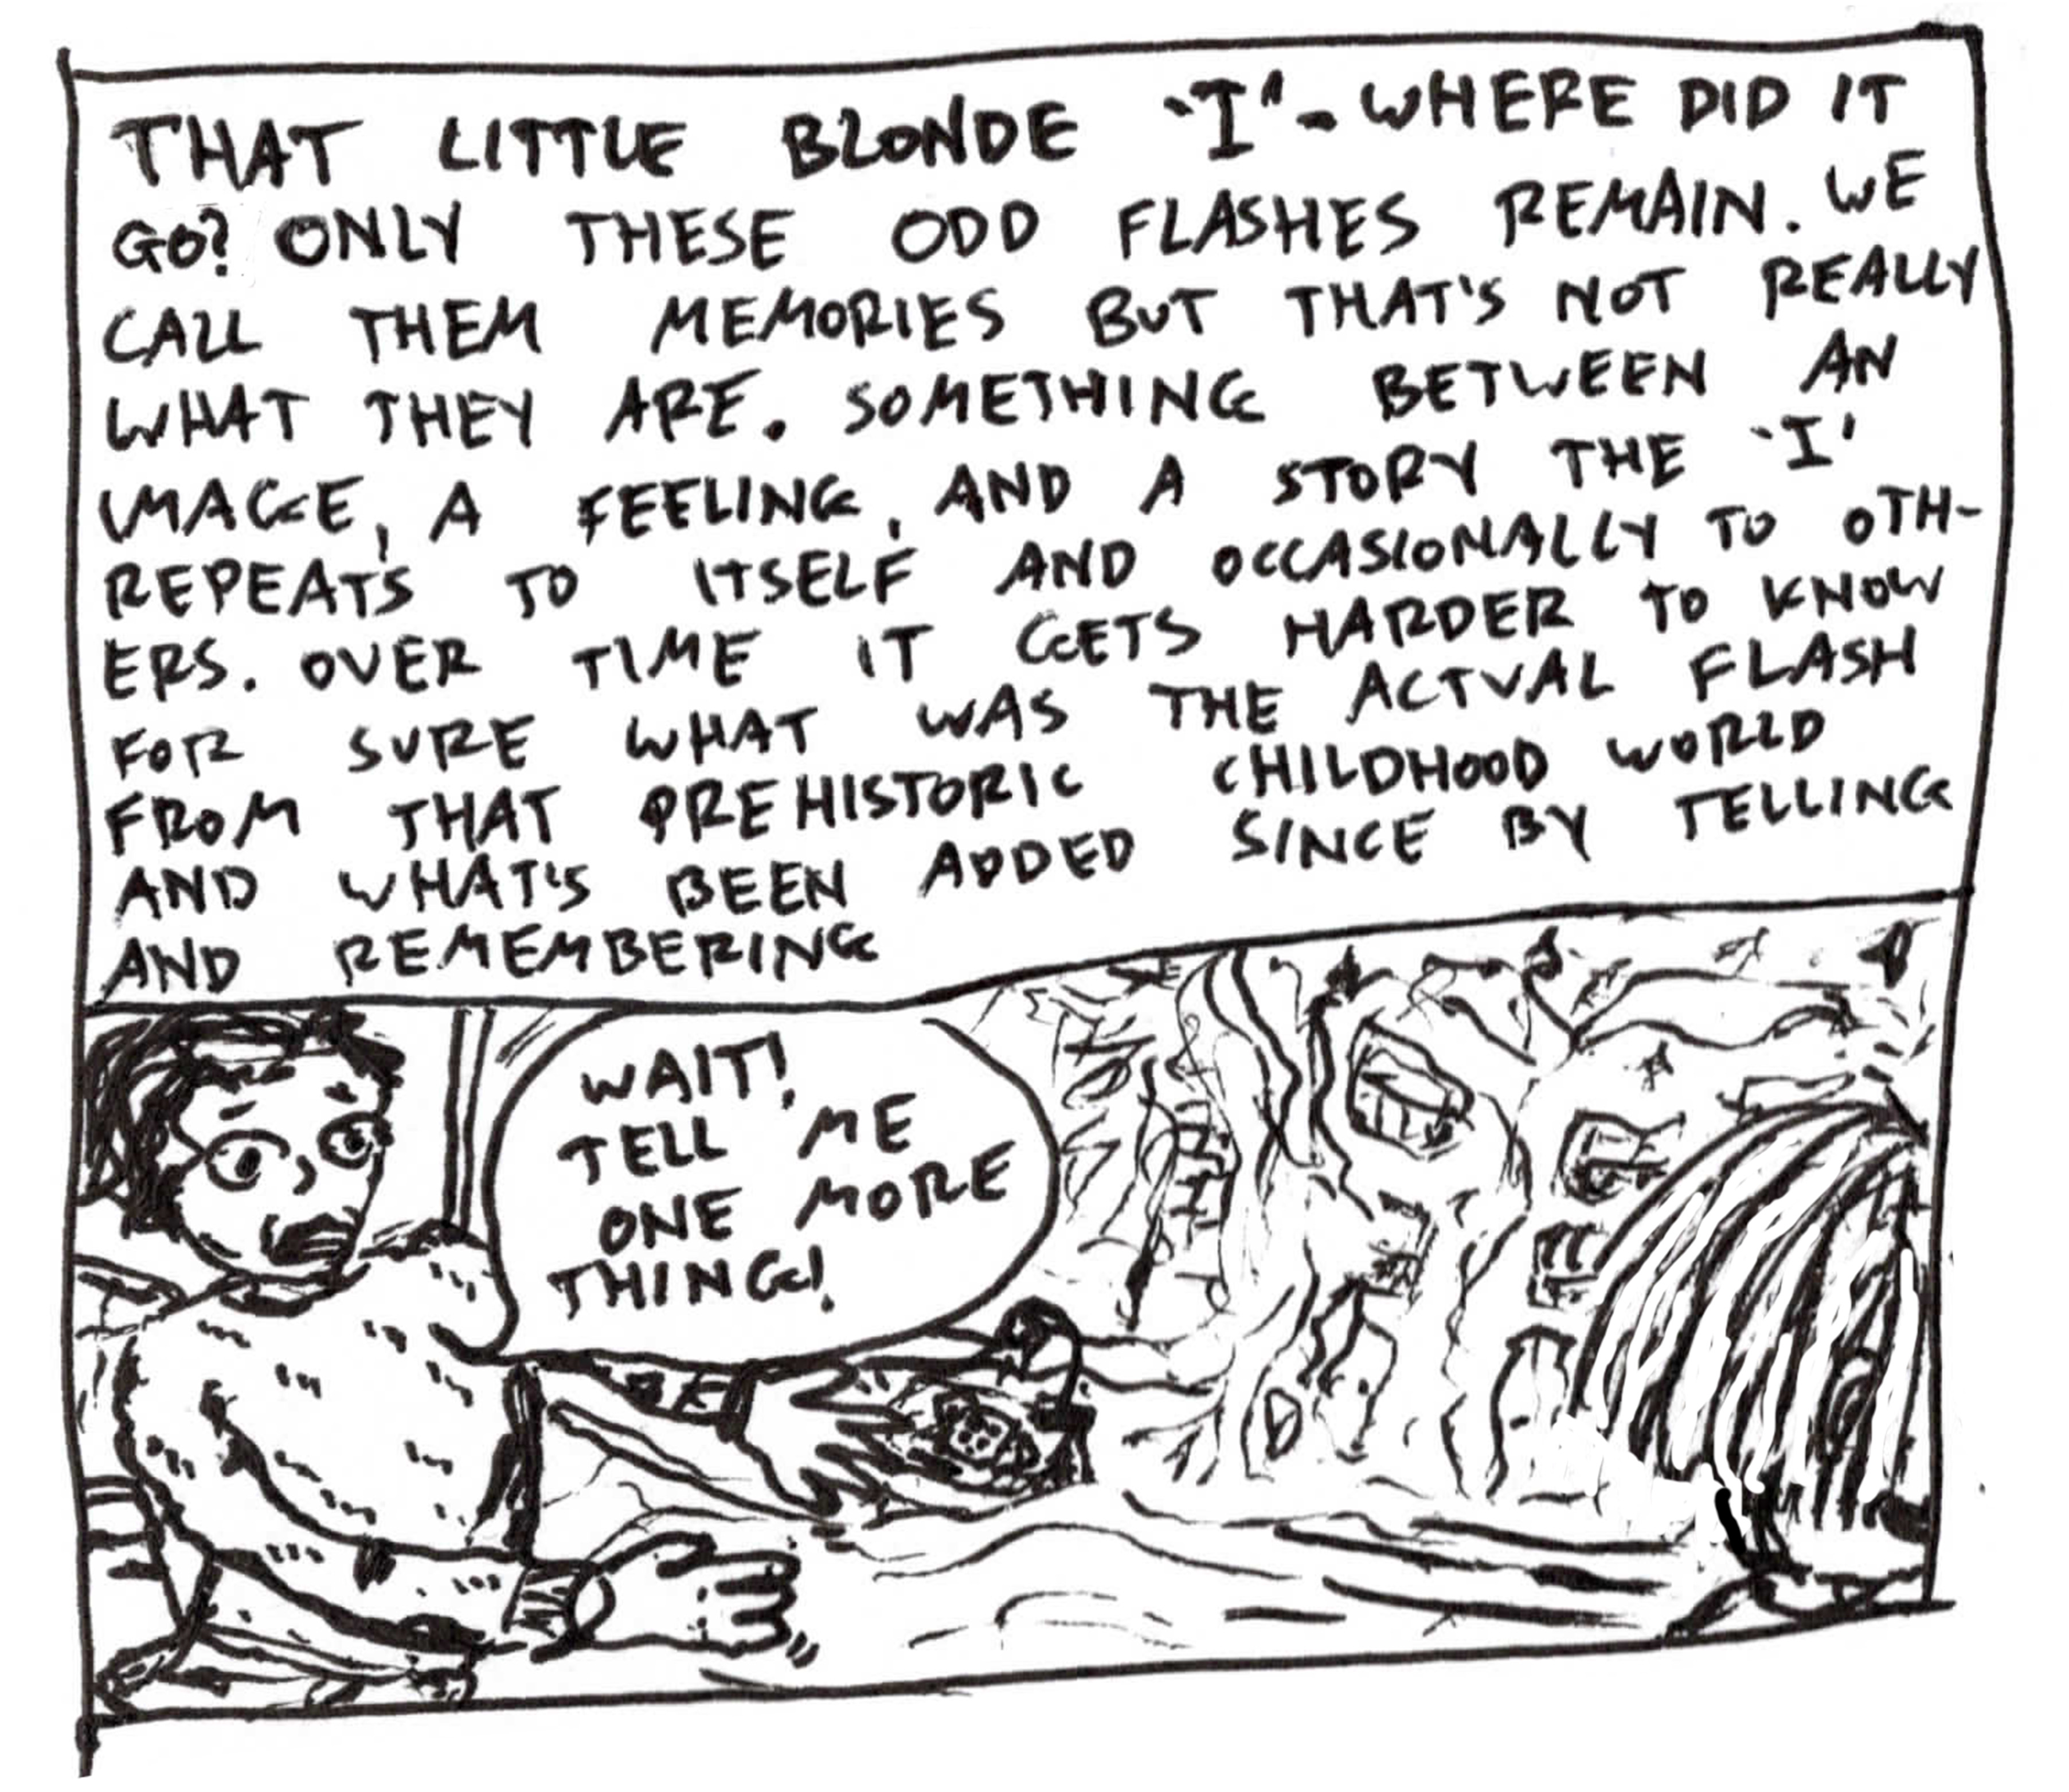 THAT LITTLE BLONDE 'I' - WHERE DID IT
GO? ONLY THESE ODD FLASHES REMAIN. WE
CALL THEM MEMORIES BUT THAT'S NOT REALLY
WHAT THEY ARE. SOMETHING BETWEEN AN
IMAGE, A FEELING, AND A STORY THE 'I'
REPEATS TO ITSELF AND OCCASIONALLY TO OTH-
ERS. OVER TIME IT GETS HARDER TO KNOW
FOR SURE WHAT WAS THE ACTUAL FLASH
FROM THAT PREHISTORIC CHILDHOOD WORLD
AND WHAT'S BEEN ADDED SINCE BY TELLING
AND REMEMBERING
WAIT!
TELL ME
ONE MORE
THING!